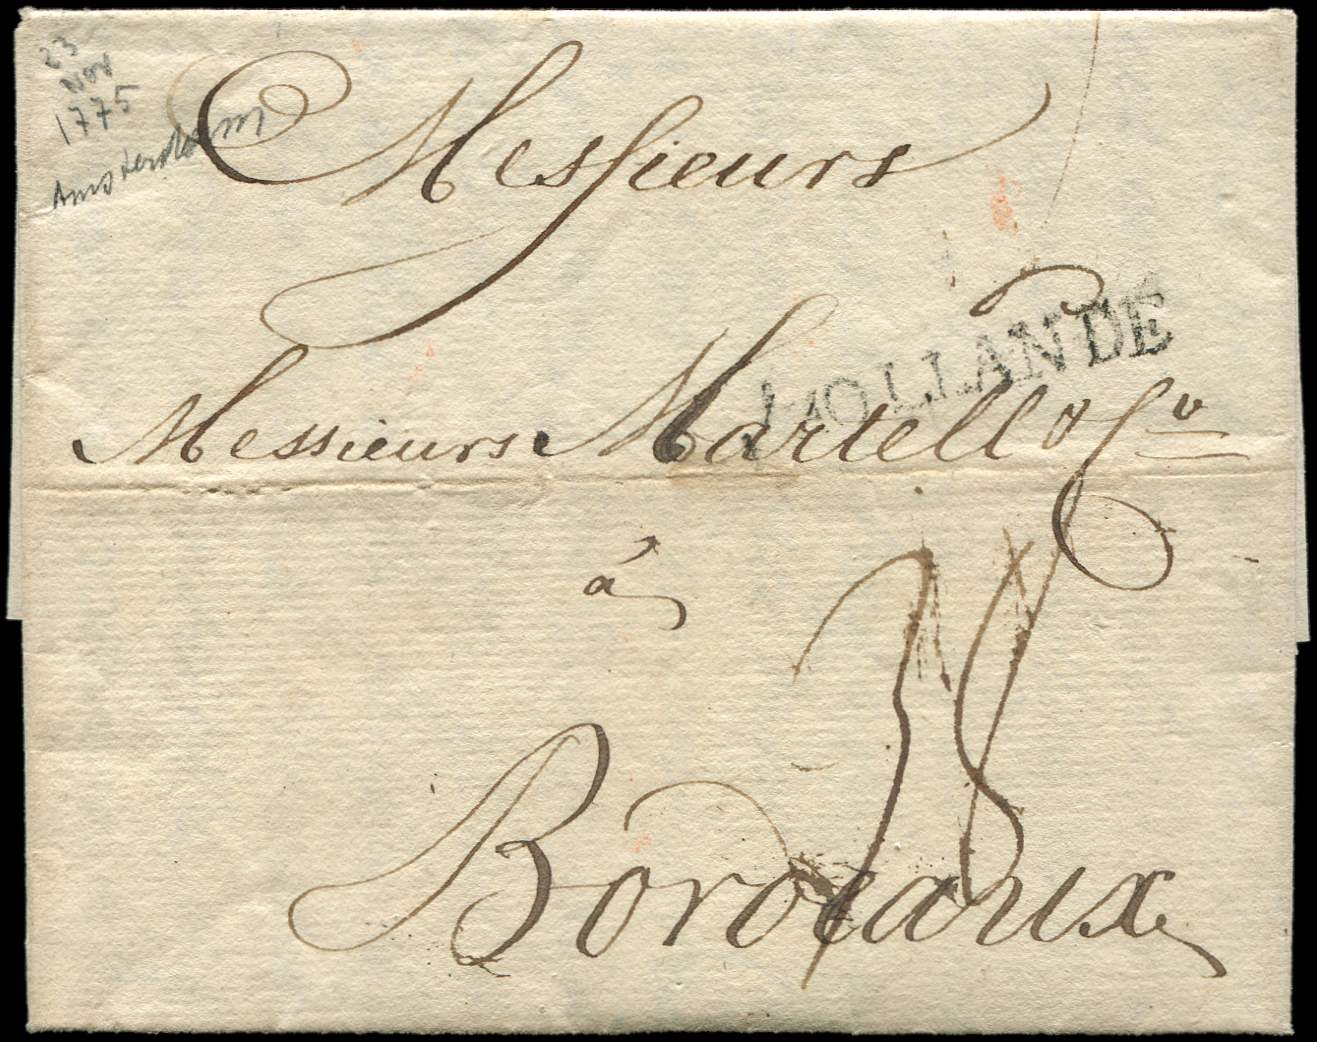 23
Nov
1775
Amsterdam
Messieurs
HOLLANDE
Messieurs Martell & Co
à
38
Bordeaux